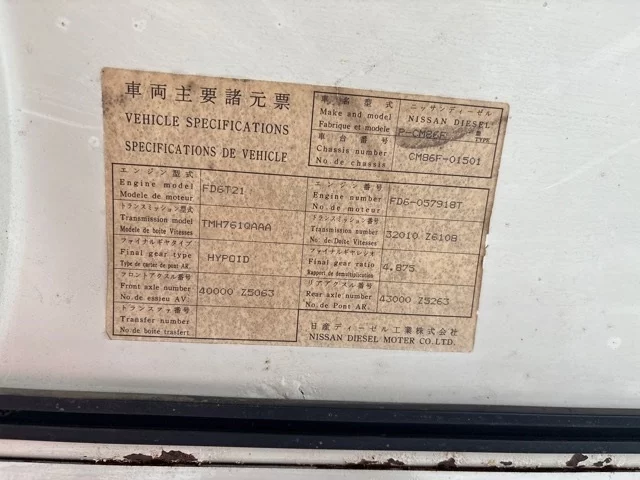 車両主要諸元票
VEHICLE SPECIFICATIONS
SPECIFICATIONS DE VEHICLE
車名型式
Make and model
Fabrique et modele
ニッサンディーゼル
NISSAN DIESEL
P-CM86F 型 TYPE
車台番号
Chassis number
No. de chassis
CM86F-01501
エンジン型式
Engine model
Modele de moteur
FD6T21
エンジン番号
Engine number
No. de moteur
FD6-057918T
トランスミッション型式
Transmission model
Modele de boite Vitesses
TMH7610AAA
トランスミッション番号
Transmission number
No. de Boite Vitesses
32010 Z6108
ファイナルギヤタイプ
Final gear type
Type de carter de pont AR.
HYPOID
ファイナルギヤレシオ
Final gear ratio
Rapport de demultiplication
4.875
フロントアクスル番号
Front axle number
No. de essieu AV.
40000 Z5063
リアアクスル番号
Rear axle number
No. de Pont AR.
43000 Z5263
トランスファ番号
Transfer number
No de boite trasfert
日産ディーゼル工業株式会社
NISSAN DIESEL MOTER CO.LTD.